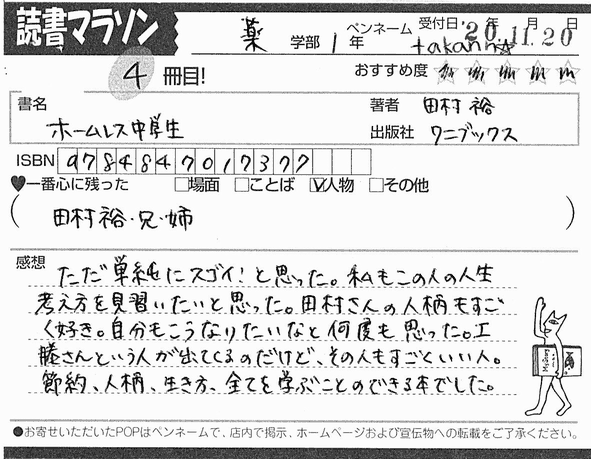 読書マラソン
薬 学部 1 年 ペンネーム takann☆ 受付日 '20年11月20日
4 冊目! おすすめ度 ☆☆☆☆☆
書名 ホームレス中学生
著者 田村 裕
出版社 ワニブックス
ISBN 9784847017377
♥一番心に残った □場面 □ことば ☑人物 □その他
( 田村裕・兄・姉 )
感想
ただ単純にスゴイ!と思った。私もこの人の人生
考え方を見習いたいと思った。田村さんの人柄もすご
く好き。自分もこうなりたいなと何度も思った。工
藤さんという人が出てくるのだけど、その人もすごくいい人。
節約、人柄、生き方、全てを学ぶことのできる本でした。
●お寄せいただいたPOPはペンネームで、店内で掲示、ホームページおよび宣伝物への転載をご了承ください。